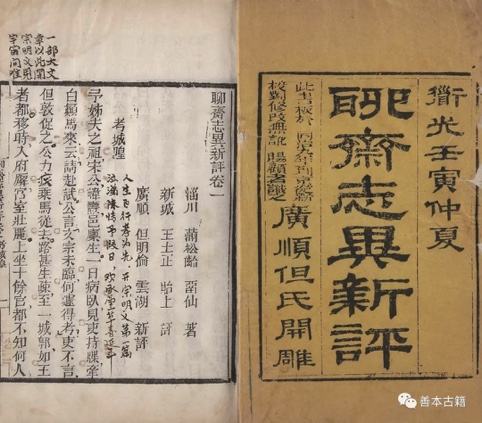 衜光壬寅仲夏
聊齋志異新評
廣順但氏開雕
校對修改無訛 賜顧者識之
聊齋志異新評卷一
淄川 蒲松齡 畱仙 著
新城 王士正 貽上 評
廣順 但明倫 雲湖 新評
考城隍
予姊夫之祖宋公諱燾邑廩生一日病臥見吏持牒牽
白顛馬來云請赴試公言文宗未臨何遽得考吏不言
但敦促之公力疾乘馬從去路甚生疎至一城郭如王
者都移時入府廨宮室壯麗上坐十餘官都不知何人
一部大文
章以此開
宗明义見
宇宙间唯
善本古籍